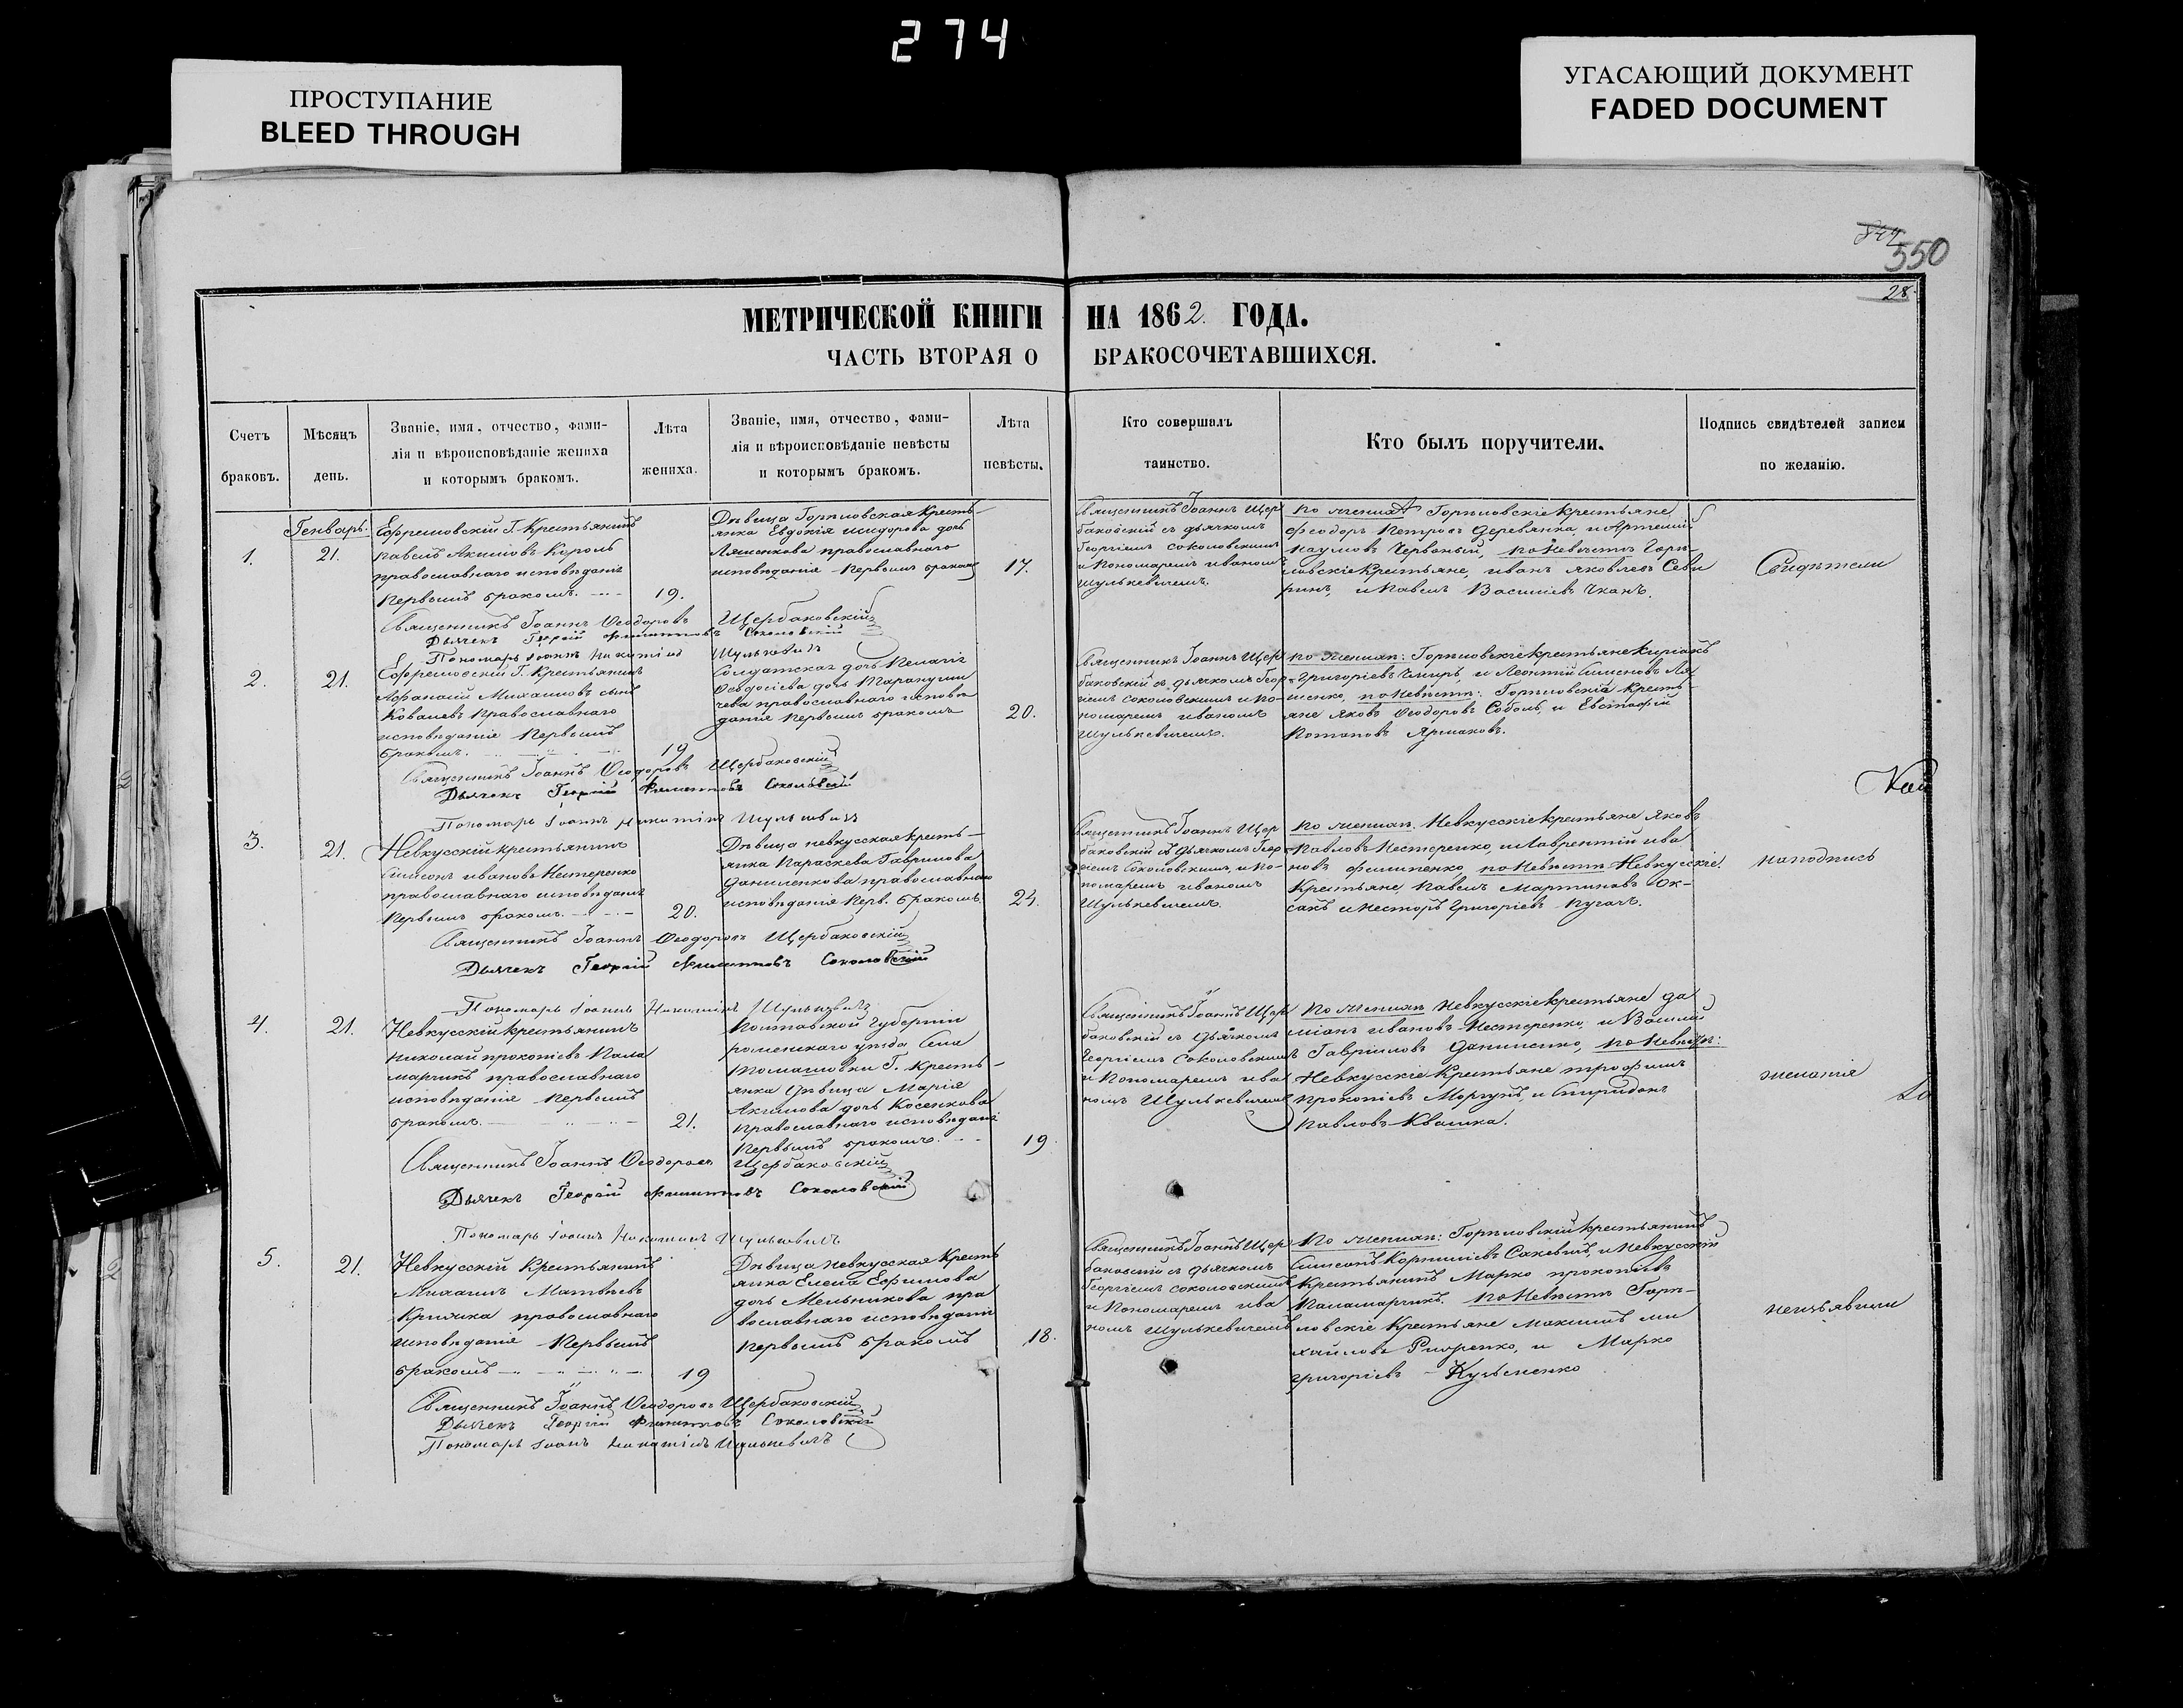 274
ПРОСТУПАНИЕ
BLEED THROUGH
УГАСАЮЩИЙ ДОКУМЕНТ
FADED DOCUMENT
550
28.
МЕТРИЧЕСКОЙ КНИГИ НА 1862. ГОДА.
ЧАСТЬ ВТОРАЯ О БРАКОСОЧЕТАВШИХСЯ.
Счетъ браковъ.
Мѣсяцъ день.
Званіе, имя, отчество, фами-
лія и вѣроисповѣданіе жениха
и которымъ бракомъ.
Лѣта жениха.
Званіе, имя, отчество, фами-
лія и вѣроисповѣданіе невѣсты
и которымъ бракомъ.
Лѣта невѣсты.
Кто совершалъ
таинство.
Кто былъ поручители.
Подпись свидѣтелей записи
по желанію.
Генварь.
1.
21.
Ефремовскій Г. Крестьянинъ
Павелъ Акимовъ Король
православнаго исповѣданія
первымъ бракомъ.
19.
Дѣвица Горѣловская кресть-
янка Евдокія Исидорова дочь
Ляшенкова православнаго
исповѣданія первымъ бракомъ
17.
Священникъ Іоаннъ Щер
баковскій съ дьячкомъ
Георгіемъ Соколовскимъ
и Пономаремъ Иваномъ
Шулькевичемъ.
по женихѣ Горѣловскіе крестьяне
Феодоръ Петровъ Деревянка, и Артемій
Наумовъ Червоный, по невѣстѣ Горѣ-
ловскіе крестьяне, Иванъ Яковлевъ Севи
ринъ, и Павелъ Василіевъ Чканъ.
Свидѣтели
Священникъ Іоаннъ Ѳеодоровъ Щербаковскій
Дьячекъ Георгій Филипповъ Соколовскій
Пономарь Іоаннъ Никитинъ Шулькевичъ
2.
21.
Ефремовскій Г. Крестьянинъ
Афанасій Михаиловъ сынъ
Ковалевъ православнаго
исповѣданія первымъ
бракомъ.
19
Солдатская дочь Пелагія
Ѳеодосіева дочь
православнаго исповѣ
данія первымъ бракомъ
20.
Священникъ Іоаннъ Щер
баковскій съ дьячкомъ Геор-
гіемъ Соколовскимъ и По-
номаремъ Иваномъ
Шулькевичемъ.
по женихѣ: Горѣловскіе крестьяне Киріакъ
Григоріевъ и Леонтій Симоновъ Ля-
шенко, по невѣстѣ: Горѣловскіе кресть-
яне Яковъ Ѳеодоровъ Соболь, и Евстафій
Потаповъ Ярмаковъ.
Священникъ Іоаннъ Ѳеодоровъ Щербаковскій
Дьячекъ Георгій Филипповъ Соколовскій
Пономарь Іоаннъ Никитинъ Шулькевичъ
3.
21.
Невкусскій крестьянинъ
Симеонъ Ивановъ Нестеренко
православнаго исповѣданія
первымъ бракомъ.
20.
Дѣвица невкусская кресть-
янка Параскева Гавриилова
Даниленкова православнаго
исповѣданія перв. бракомъ.
24.
Священникъ Іоаннъ Щер
баковскій съ дьячкомъ Геор
гіемъ Соколовскимъ, и По-
номаремъ Иваномъ
Шулькевичемъ.
по женихѣ Невкусскіе крестьяне Яковъ
Павловъ Нестеренко, и Лаврентій Ива
новъ Филипенко, по невѣстѣ Невкусскіе
крестьяне, Павелъ Мартиновъ Ок-
сакъ и Несторъ Григоріевъ Пугачъ.
на подпись
Священникъ Іоаннъ Ѳеодоровъ Щербаковскій
Дьячекъ Георгій Филипповъ Соколовскій
Пономарь Іоаннъ Никитинъ Шулькевичъ
4.
21.
Невкусскій крестьянинъ
Николай Прокопіевъ Пала
марчикъ православнаго
исповѣданія первымъ
бракомъ.
21.
Полтавской губерніи
роменскаго уѣзда села
Томашовки Г. кресть-
янка дѣвица Марія
Акимова дочь Косенкова
православнаго исповѣданія
первымъ бракомъ.
19
Священникъ Іоаннъ Щер
баковскій съ дьячкомъ
Георгіемъ Соколовскимъ
и Пономаремъ Ива
номъ Шулькевичемъ
По женихѣ Невкусскіе крестьяне Да
міанъ Ивановъ Нестеренко, и Василій
Гавриловъ Даниленко, по невѣстѣ:
Невкусскіе крестьяне Трофимъ
Прокопіевъ Моргунъ, и Спиридонъ
Павловъ Квашка.
желанія
Священникъ Іоаннъ Ѳеодоровъ Щербаковскій
Дьячекъ Георгій Филипповъ Соколовскій
Пономарь Іоаннъ Никитинъ Шулькевичъ
5.
21.
Невкусскій крестьянинъ
Михаилъ Матвѣевъ
православнаго
исповѣданія первымъ
бракомъ
19
Дѣвица невкусская кресть
янка Елена Ефимова
дочь Мельникова пра
вославнаго исповѣданія
первымъ бракомъ
18.
Священникъ Іоаннъ Щер
баковскій съ дьячкомъ
Георгіемъ Соколовскимъ
и Пономаремъ Ива
номъ Шулькевичемъ
По женихѣ: Горѣловскій крестьянинъ
Симеонъ Корниліевъ и Невкусскій
крестьянинъ Марко Прокопіевъ
Паламарчикъ. По невѣстѣ Горѣ-
ловскіе крестьяне Максимъ Ми
хайловъ и Марко
Григоріевъ Кузьменко
не изъявили
Священникъ Іоаннъ Ѳеодоровъ Щербаковскій
Дьячекъ Георгій Филипповъ Соколовскій
Пономарь Іоаннъ Никитинъ Шулькевичъ